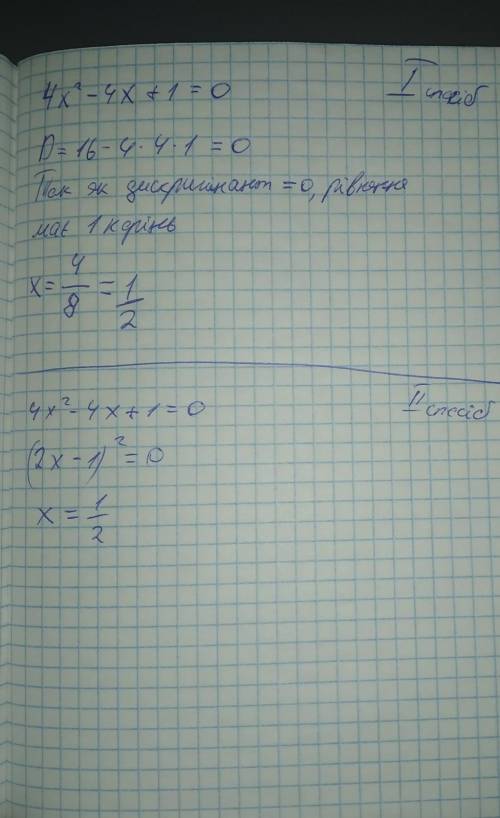 4x² - 4x + 1 = 0
I спосіб
D = 16 - 4 · 4 · 1 = 0
Так як дискримінант = 0, рівняння
має 1 корінь
x = 4/8 = 1/2
4x² - 4x + 1 = 0
II спосіб
(2x - 1)² = 0
x = 1/2